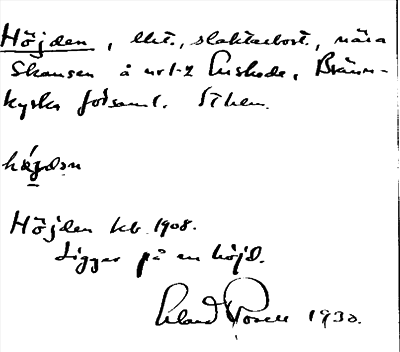 Höjden, lht., slaktarbost., nära
Skansen å nr 1-2 Enskede, Bränn-
kyrka förssaml. Sthlm.
hǽjdən
Höjden kb. 1908.
Ligger på en höjd.
Erland Rosell 1930.